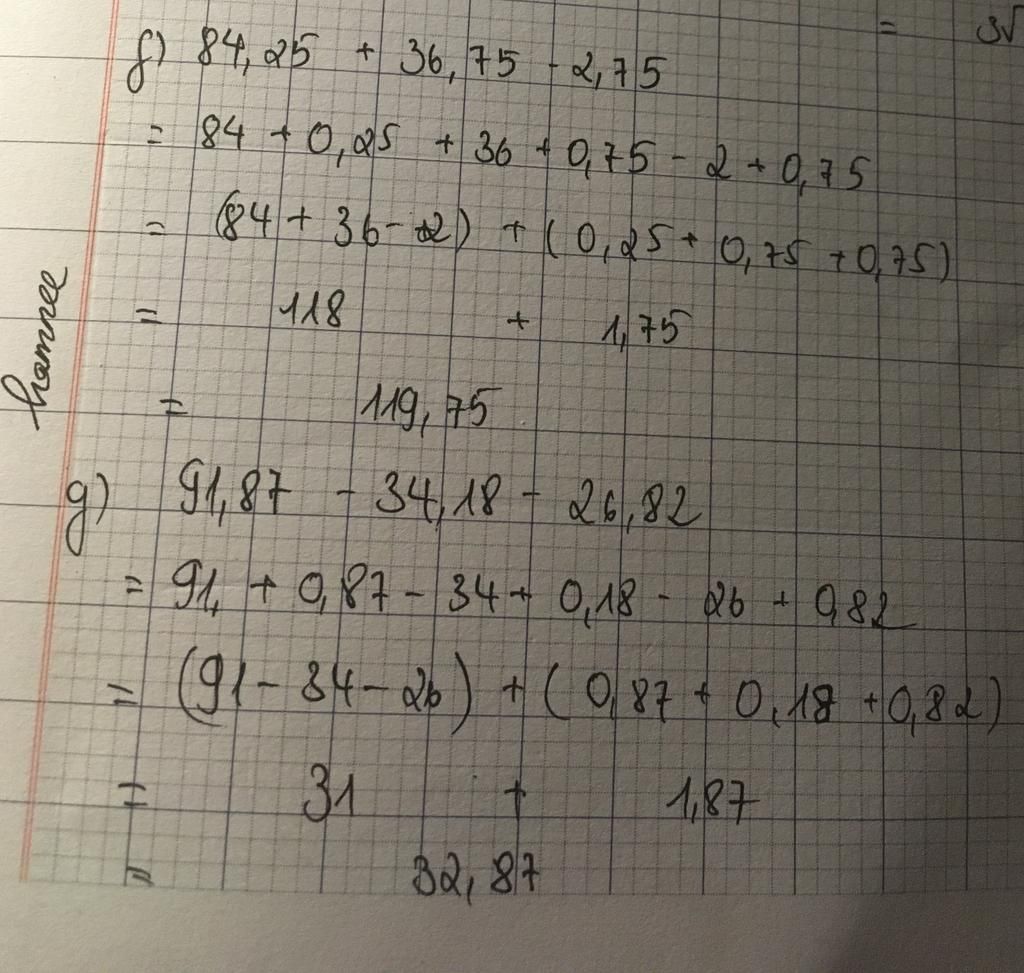 f) 84,25 + 36,75 - 2,75
= 84 + 0,25 + 36 + 0,75 - 2 + 0,75
= (84 + 36 - 2) + (0,25 + 0,75 + 0,75)
= 118 + 1,75
= 119,75
g) 91,87 - 34,18 - 26,82
= 91, + 0,87 - 34 + 0,18 - 26 + 0,82
= (91 - 34 - 26) + (0,87 + 0,18 + 0,82)
= 31 + 1,87
= 32,87